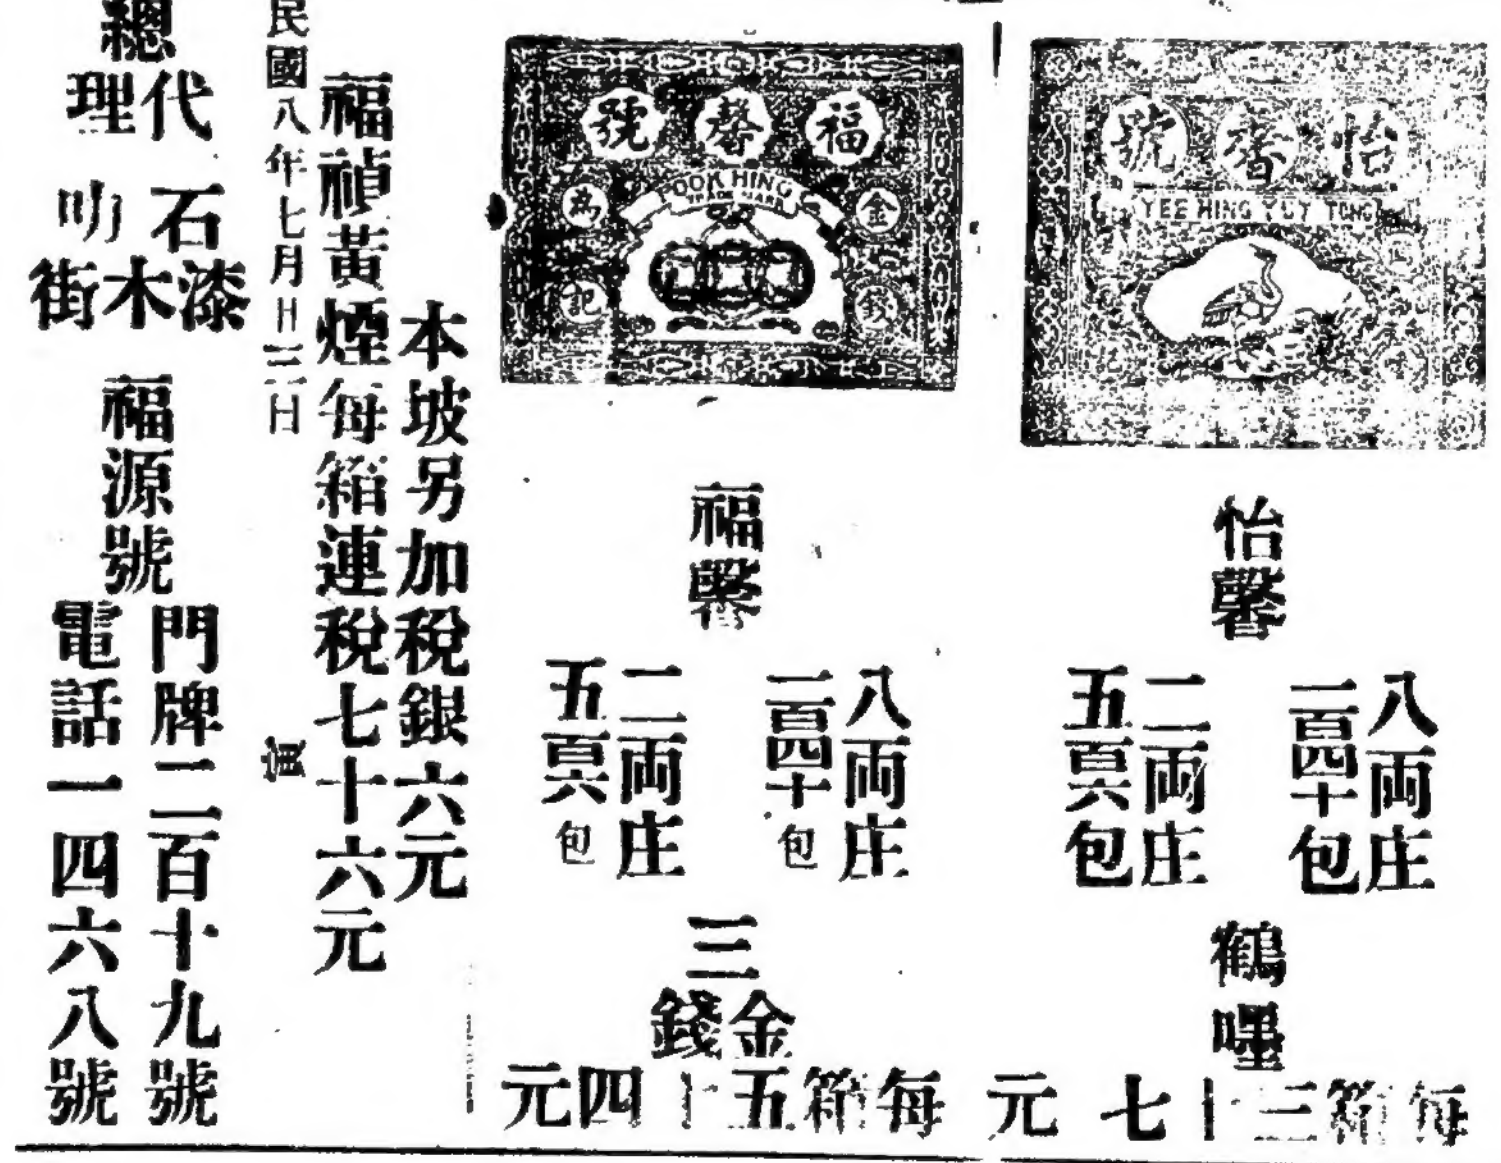 怡馨號
YEE HING YUY TONG
怡馨
八両庄
二百四十包
二両庄
五百六包
鶴嘜
每箱三十七元
福馨號
FOOK HING
TRADE MARK
金錢
為記
福馨
八両庄
二百四十包
二両庄
五百六包
三金錢
每箱五十四元
本坡另加稅銀六元
福禎黃煙每箱連稅七十六元
民國八年七月廿三日
寅
總代理
石叻漆木街
福源號
門牌二百十九號
電話一四六八號